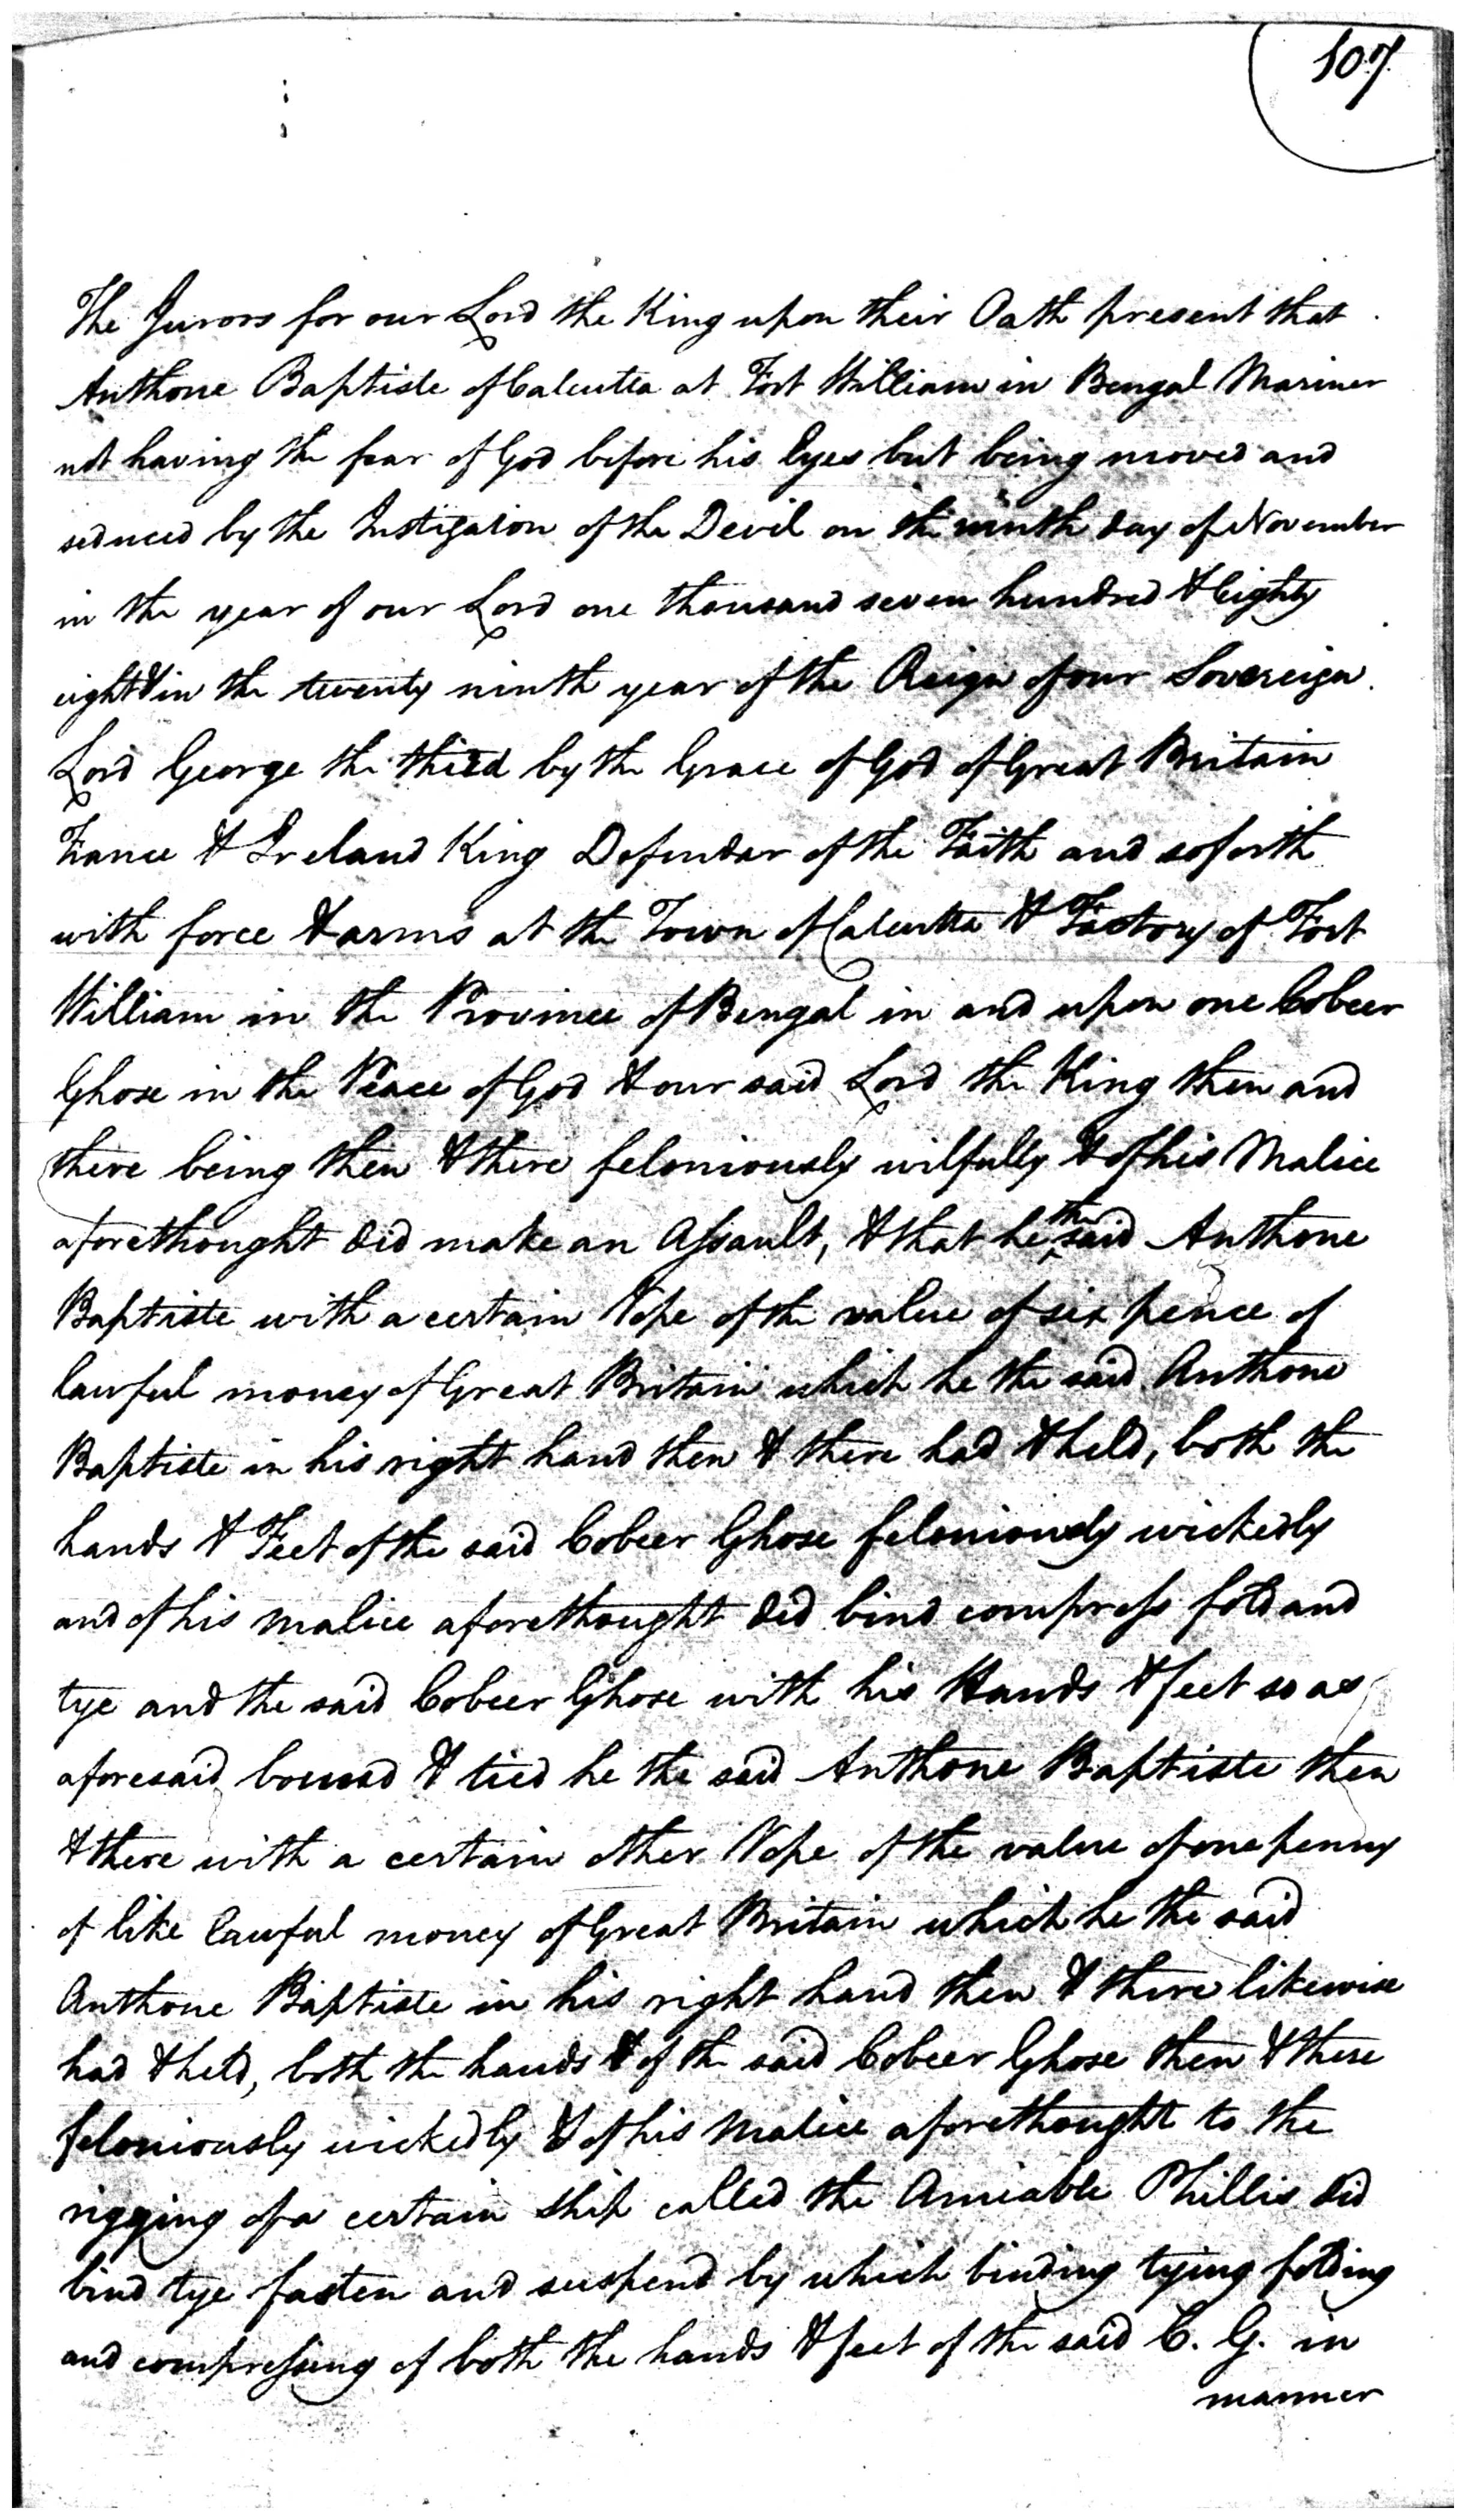 107
The Jurors for our Lord the King upon their Oath present that
Anthone Baptiste of Calcutta at Fort William in Bengal Mariner
not having the fear of God before his Eyes but being moved and
seduced by the Instigaion of the Devil on the ninth day of November
in the year of our Lord one thousand seven hundred & Eighty
eight & in the twenty ninth year of the Reign of our Sovereign
Lord George the third by the Grace of God of Great Britain
France & Ireland King Defender of the Faith and soforth
with force & arms at the Town of Calcutta & Factory of Fort
William in the Province of Bengal in and upon one Cobeer
Ghose in the Peace of God & our said Lord the King then and
there being then & there feloniously wilfully & of his Malice
aforethought did make an Assault, & that he the said Anthone
Baptiste with a certain Rope of the value of six pence of
lawful money of Great Britain which he the said Anthone
Baptiste in his right hand then & there had & held, both the
hands & Feet of the said Cobeer Ghose feloniously wickedly
and of his malice aforethought did bind compress fold and
tye and the said Cobeer Ghose with his Hands & feet so as
aforesaid bound & tied he the said Anthone Baptiste then
& there with a certain other Rope of the value of one penny
of like lawful money of Great Britain which he the said
Anthone Baptiste in his right hand then & there likewise
had & held, both the hands & of the said Cobeer Ghose then & there
feloniously wickedly & of his malice aforethought to the
rigging of a certain ship called the Amiable Phillis did
bind tye fasten and suspend by which binding tying folding
and compressing of both the hands & feet of the said C. G. in
manner